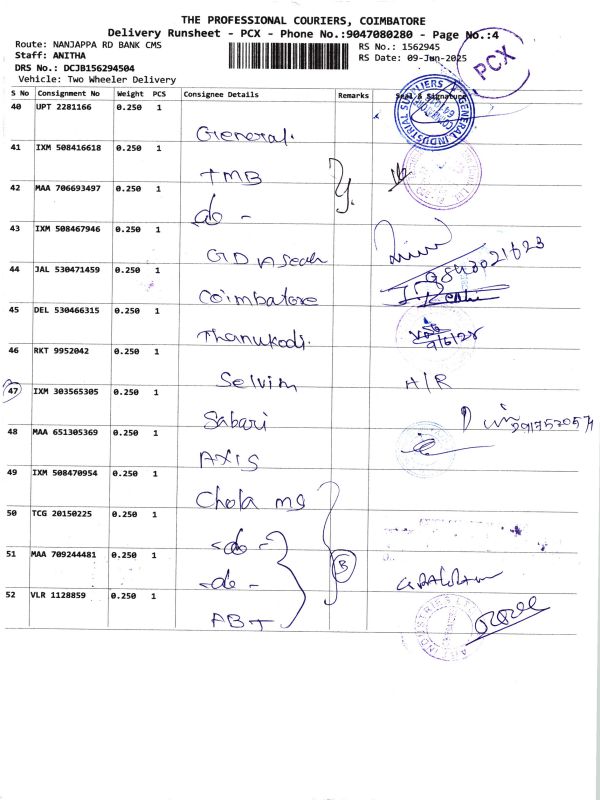 THE PROFESSIONAL COURIERS, COIMBATORE
Delivery Runsheet - PCX - Phone No.:9047080280 - Page No.:4
Route: NANJAPPA RD BANK CMS
RS No.: 1562945
Staff: ANITHA
RS Date: 09-Jun-2025
DRS No.: DCJB156294504
Vehicle: Two Wheeler Delivery
PCX
S No Consignment No Weight PCS Consignee Details Remarks Seal & Signature
40 UPT 2281166 0.250 1
General.
GENERAL INDUSTRIAL SUPPLIERS
41 IXM 508416618 0.250 1
TMB
42 MAA 706693497 0.250 1
do -
43 IXM 508467946 0.250 1
44 JAL 530471459 0.250 1
Coimbatore
45 DEL 530466315 0.250 1
Thanukodi.
46 RKT 9952042 0.250 1
Selvin H/R
47 IXM 303565305 0.250 1
Sabari
48 MAA 651305369 0.250 1
AXIS
49 IXM 508470954 0.250 1
Chola ms
50 TCG 20150225 0.250 1
- do -
51 MAA 709244481 0.250 1
- do -
B
52 VLR 1128859 0.250 1
ABT